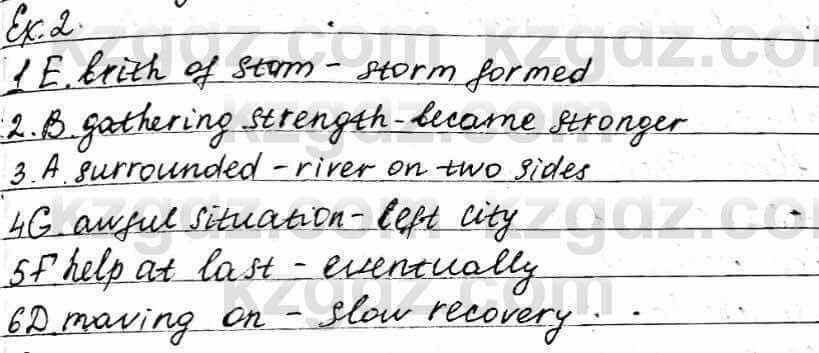 Ex. 2.
1 E. brith of stom - storm formed
2. B. gathering strength - became stronger
3. A. surrounded - river on two sides
4G. awful situation - left city
5F help at last - eventually
6D moving on - slow recovery.
kzgdz.com